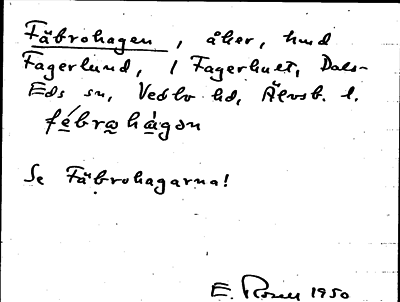 Fäbrohagen, åker, hmd
Fagerlund, 1 Fagerhult, Dals-
Eds sn, Vedbo hd, Älvsb. l.
fébrahàgən
Se Fäbrohagarna!
E. Rosell 1950